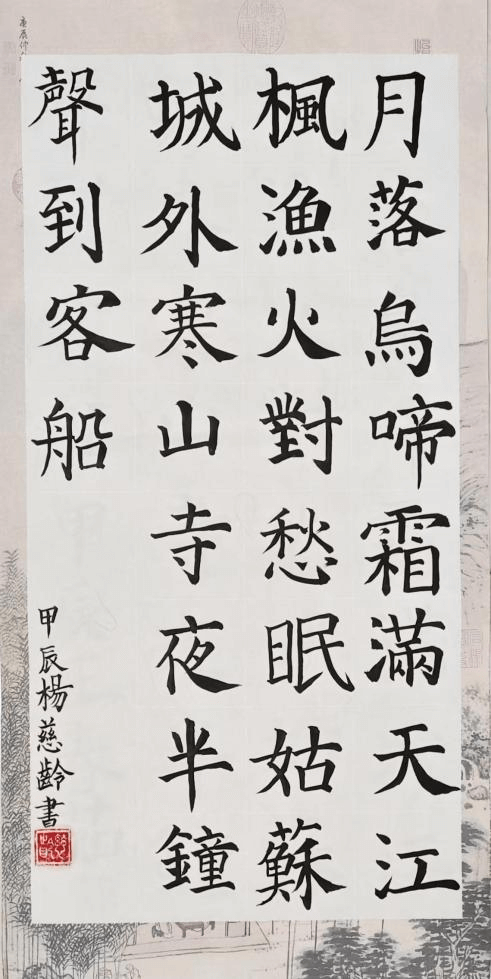 月落烏啼霜滿天江
楓漁火對愁眠姑蘇
城外寒山寺夜半鐘
聲到客船
甲辰楊慈齡書